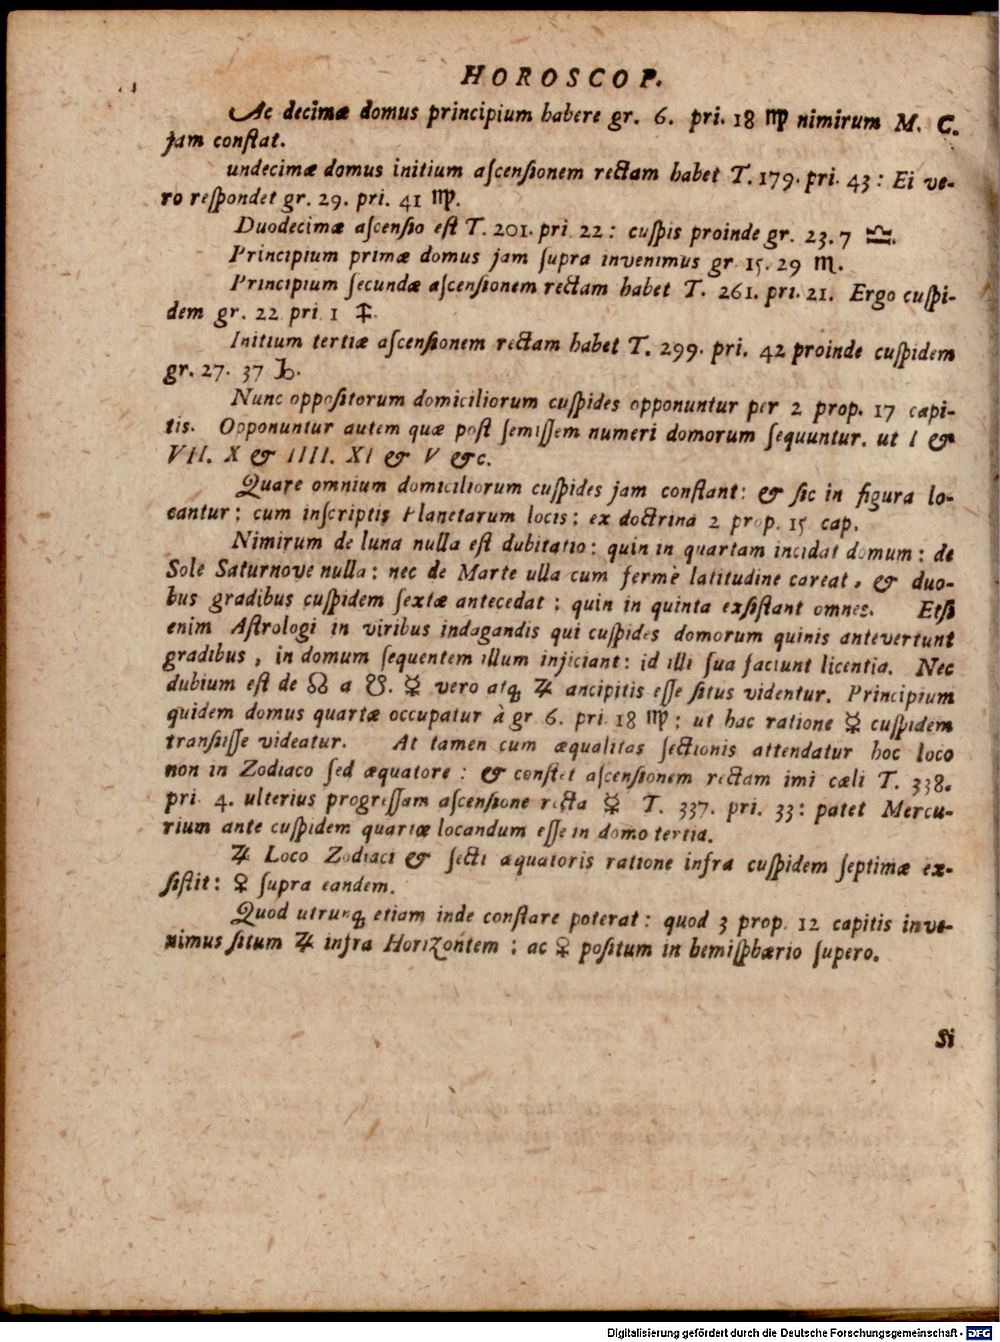 HOROSCOP.
Ac decimæ domus principium habere gr. 6. pri. 18 ♍ nimirum M. C.
jam conſtat.
undecimæ domus initium aſcenſionem rectam habet T. 179. pri. 43 : Ei ve-
ro reſpondet gr. 29. pri. 41 ♍.
Duodecimæ aſcenſio eſt T. 201. pri. 22 : cuſpis proinde gr. 23. 7 ♎.
Principium primæ domus jam ſupra invenimus gr. 15. 29 ♏.
Principium ſecundæ aſcenſionem rectam habet T. 261. pri. 21. Ergo cuſpi-
dem gr. 22 pri 1 ♐.
Initium tertiæ aſcenſionem rectam habet T. 299. pri. 42 proinde cuſpidem
gr. 27. 37 ♑.
Nunc oppoſitorum domiciliorum cuſpides opponuntur per 2 prop. 17 capi-
tis. Opponuntur autem quæ poſt ſemiſſem numeri domorum ſequuntur. ut I &
VII. X & IIII. XI & V &c.
Quare omnium domiciliorum cuſpides jam conſtant: & ſic in figura lo-
cantur; cum inſcriptis Planetarum locis; ex doctrina 2 prop. 15 cap.
Nimirum de luna nulla eſt dubitatio: quin in quartam incidat domum: de
Sole Saturnove nulla: nec de Marte ulla cum fermè latitudine careat, & duo-
bus gradibus cuſpidem ſextæ antecedat; quin in quinta exſiſtant omnes. Etſi
enim Aſtrologi in viribus indagandis qui cuſpides domorum quinis antevertunt
gradibus, in domum ſequentem illum injiciant: id illi ſua faciunt licentia. Nec
dubium eſt de ☊ a ☋. ☿ vero atq; ♃ ancipitis eſſe ſitus videntur. Principium
quidem domus quartæ occupatur à gr. 6. pri. 18 ♍: ut hac ratione ☿ cuſpidem
tranſiiſſe videatur. At tamen cum æqualitas ſectionis attendatur hoc loco
non in Zodiaco ſed æquatore: & conſtet aſcenſionem rectam imi cæli T. 338.
pri. 4. ulterius progreſſam aſcenſione recta ☿ T. 337. pri. 33: patet Mercu-
rium ante cuſpidem quartæ locandum eſſe in domo tertia.
♃ Loco Zodiaci & ſecti æquatoris ratione infra cuſpidem ſeptimæ ex-
ſiſtit: ♀ ſupra eandem.
Quod utrunq; etiam inde conſtare poterat: quod 3 prop. 12 capitis inve-
nimus ſitum ♃ infra Horizontem; ac ♀ poſitum in hemiſphærio ſupero.
Si
Digitalisierung gefördert durch die Deutsche Forschungsgemeinschaft - DFG